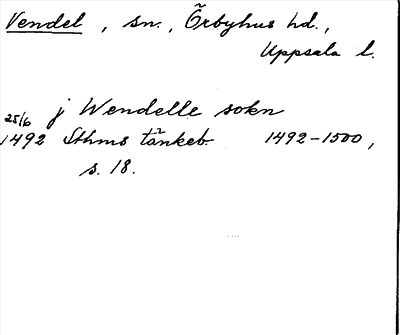 Vendel, sn., Örbyhus hd.,
Uppsala l.
j Wendelle sokn
25/6
1492 Sthms tänkeb. 1492-1500,
s. 18.